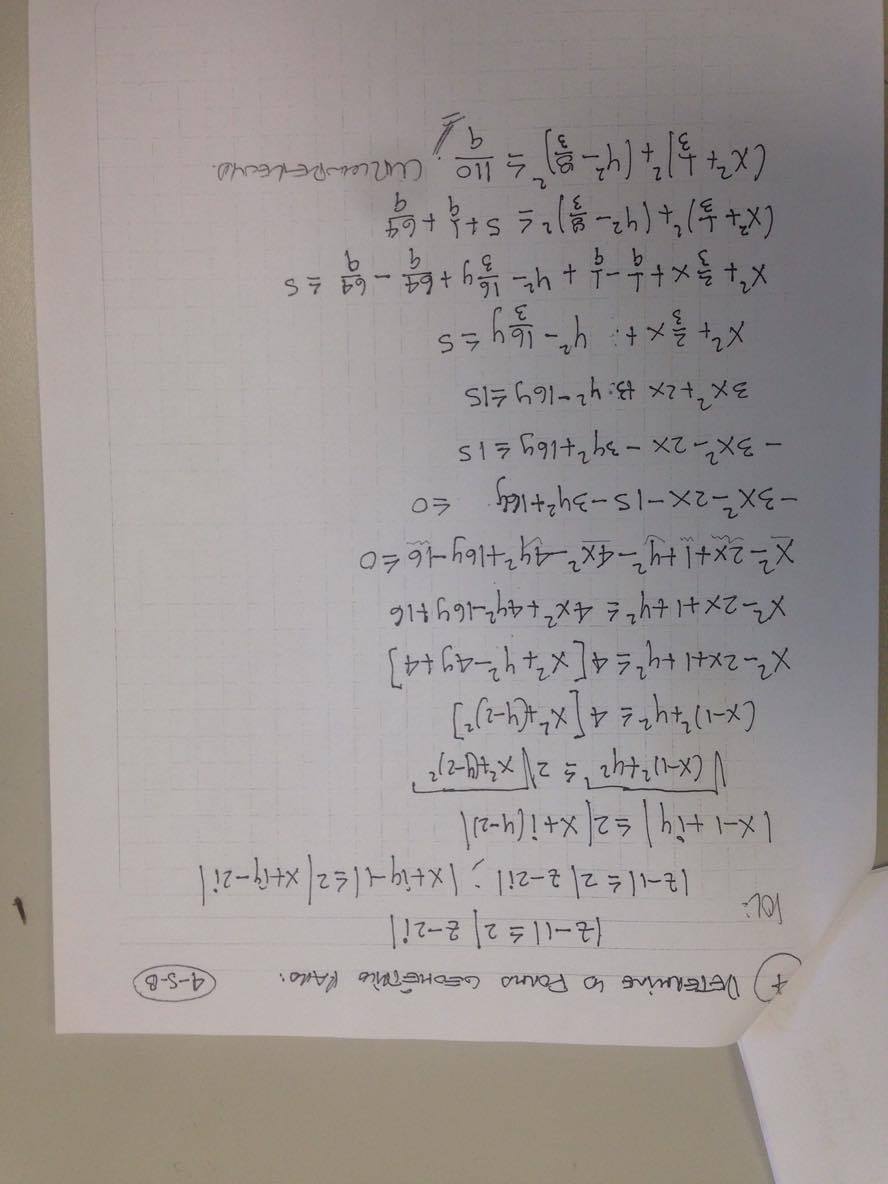 4 DETERMINE LA FORMA GEOMÉTRICA PARA: 4-S-B
|z-1| ≤ 2|z-2i|
SOL:
|z-1| ≤ 2|z-2i| ; |x+iy-1| ≤ 2|x+iy-2i|
|x-1+iy| ≤ 2|x+i(y-2)|
√((x-1)²+y²) ≤ 2√(x²+(y-2)²)
(x-1)²+y² ≤ 4[x²+(y-2)²]
x²-2x+1+y² ≤ 4[x²+y²-4y+4]
x²-2x+1+y² ≤ 4x²+4y²-16y+16
x²-2x+1+y²-4x²-4y²+16y-16 ≤ 0
-3x²-2x-15-3y²+16y ≤ 0
-3x²-2x-3y²+16y ≤ 15
3x²+2x+3y²-16y ≤ 15
x²+2/3x+y²-16/3y ≤ 5
x²+2/3x+1/9-1/9+y²-16/3y+64/9-64/9 ≤ 5
(x²+1/3)²+(y²-8/3)² ≤ 5+1/9+64/9
(x²+1/3)²+(y²-8/3)² ≤ 110/9. CIRCUNFERENCIA.